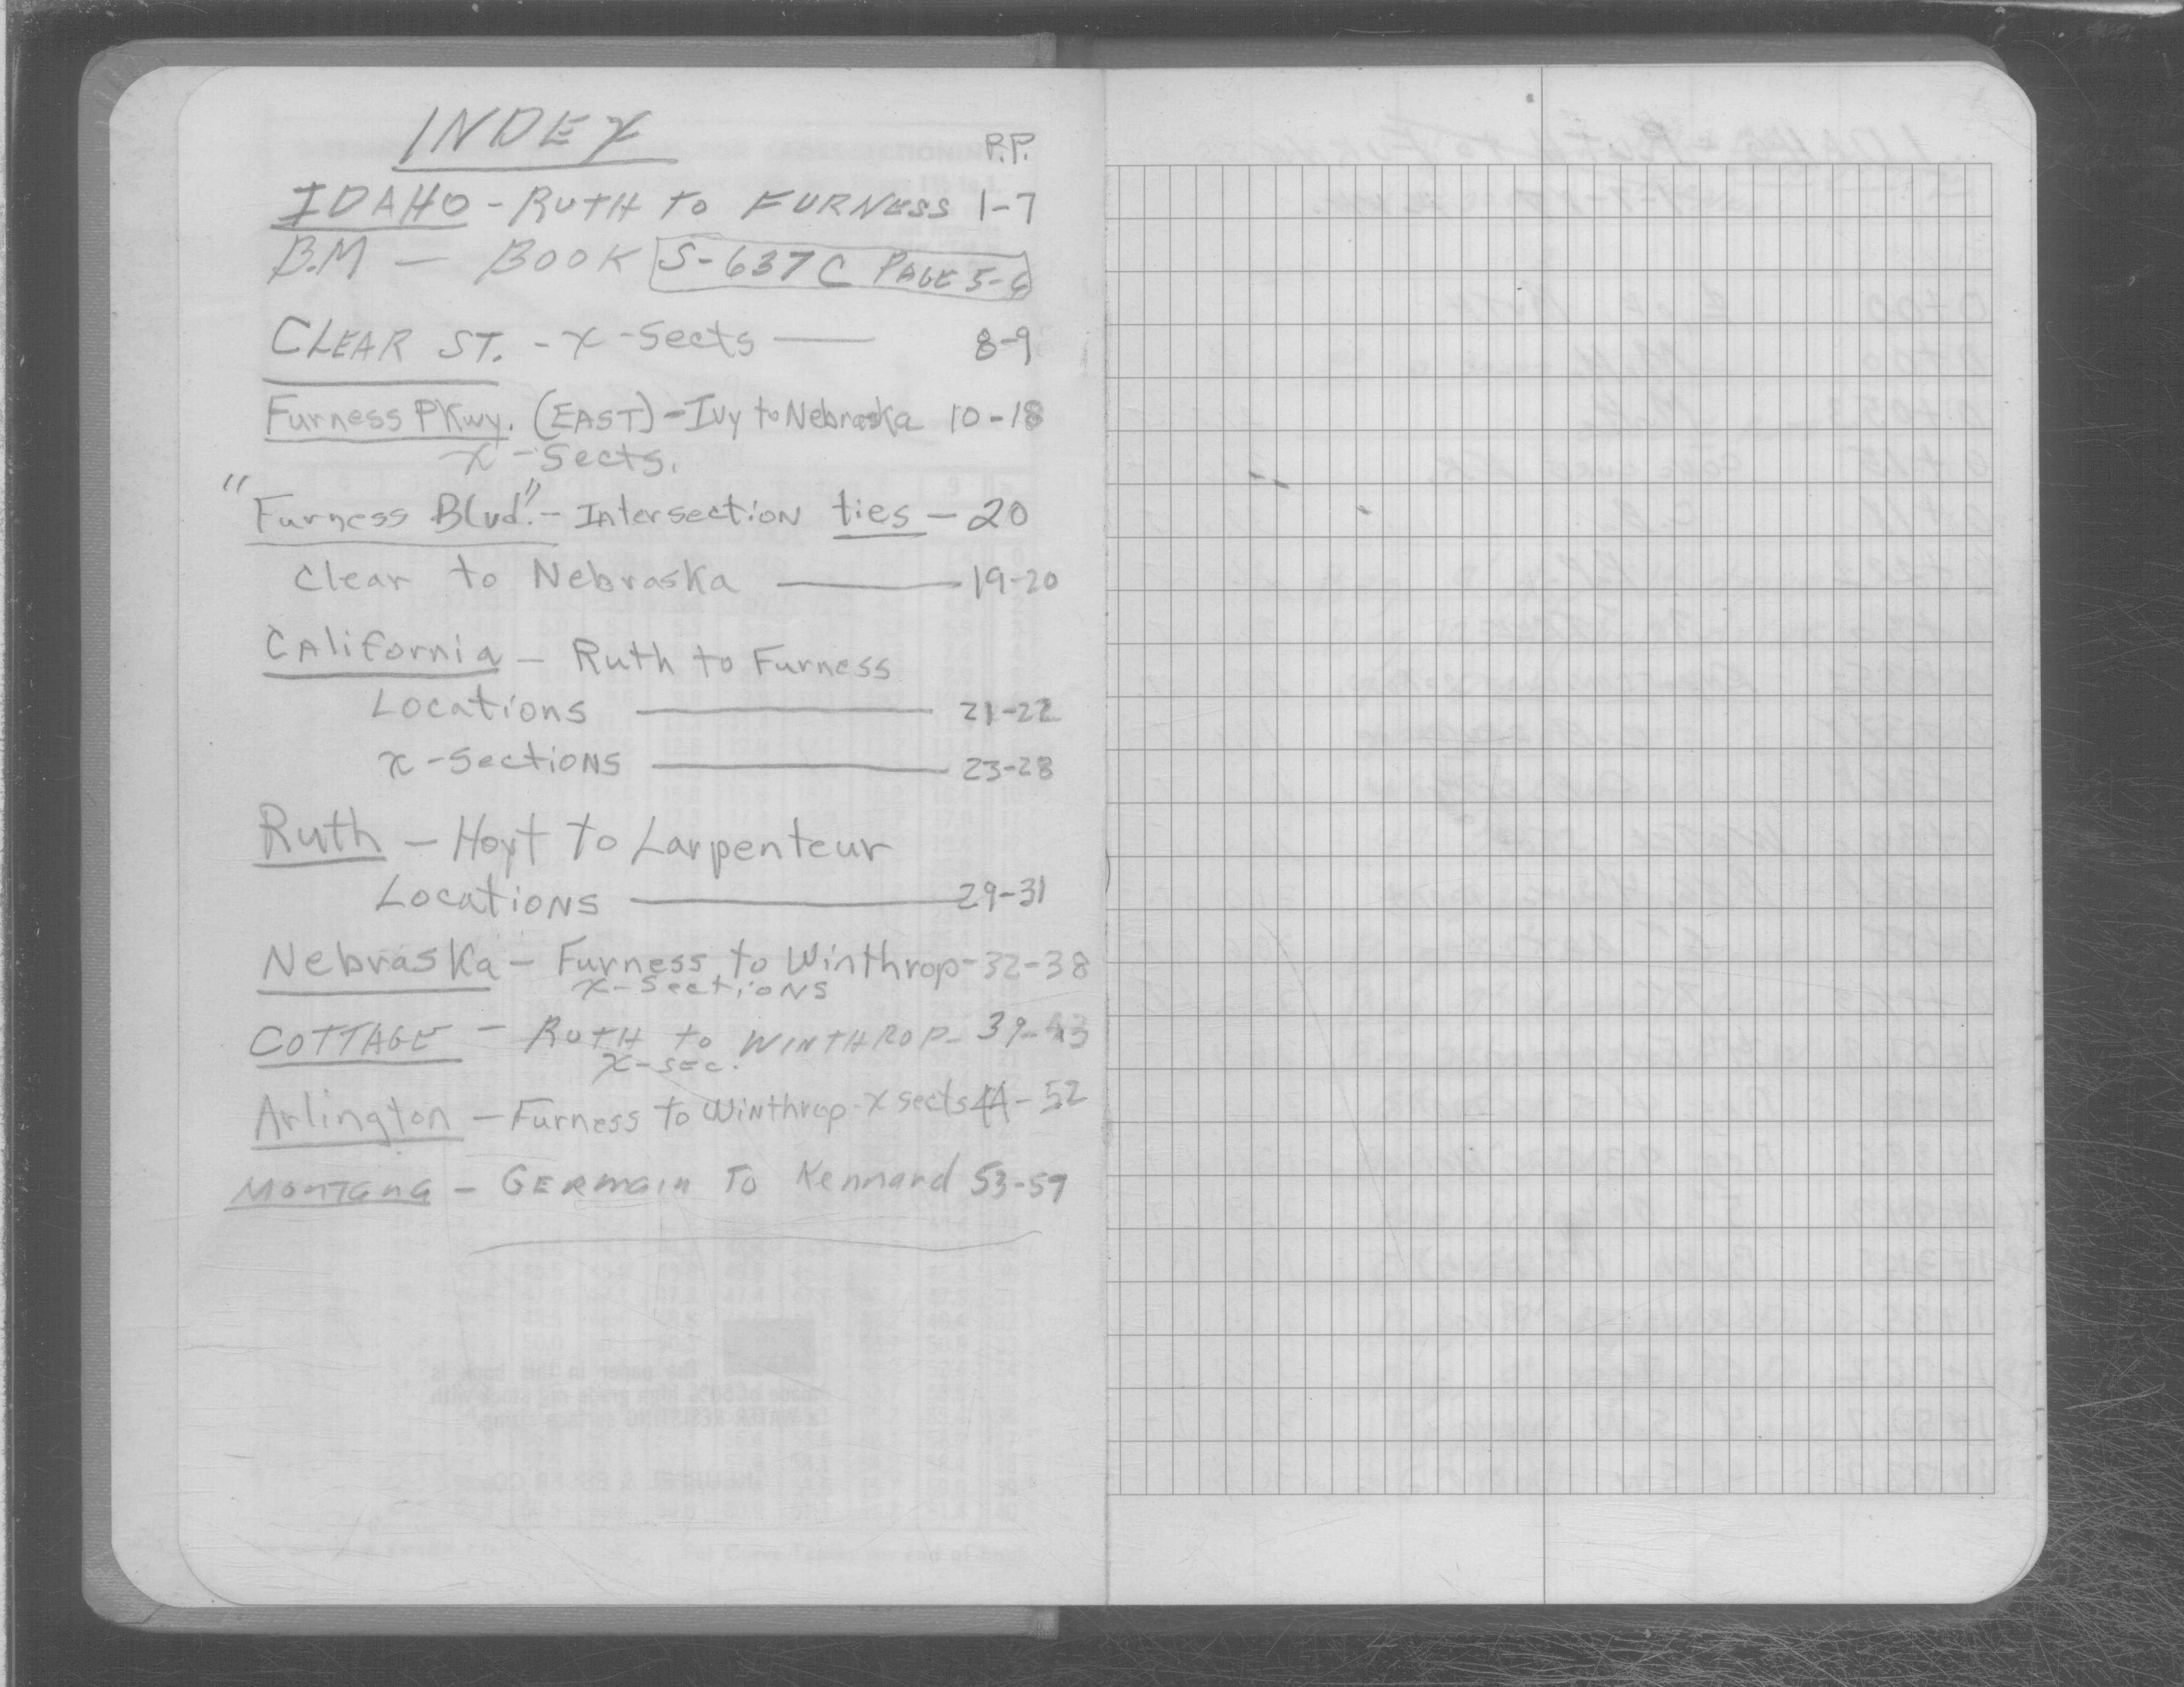 INDEX
P.P.
IDAHO - RUTH to FURNESS 1-7
B.M — BOOK S-637C PAGE 5-6
CLEAR ST. - x-Sects — 8-9
Furness PKwy. (EAST) - Ivy to Nebraska 10-18
x-Sects.
"Furness Blvd." - Intersection ties - 20
Clear to Nebraska — 19-20
CAlifornia - Ruth to Furness
Locations — 21-22
x-Sections — 23-28
Ruth - Hoyt to Larpenteur
Locations — 29-31
Nebraska - Furness to Winthrop - 32-38
x-Sections
COTTAGE - RUTH to WINTHROP - 39-43
X-SEC.
Arlington - Furness to Winthrop - X sects 44-52
MONTana - GERmain To Kennard 53-59